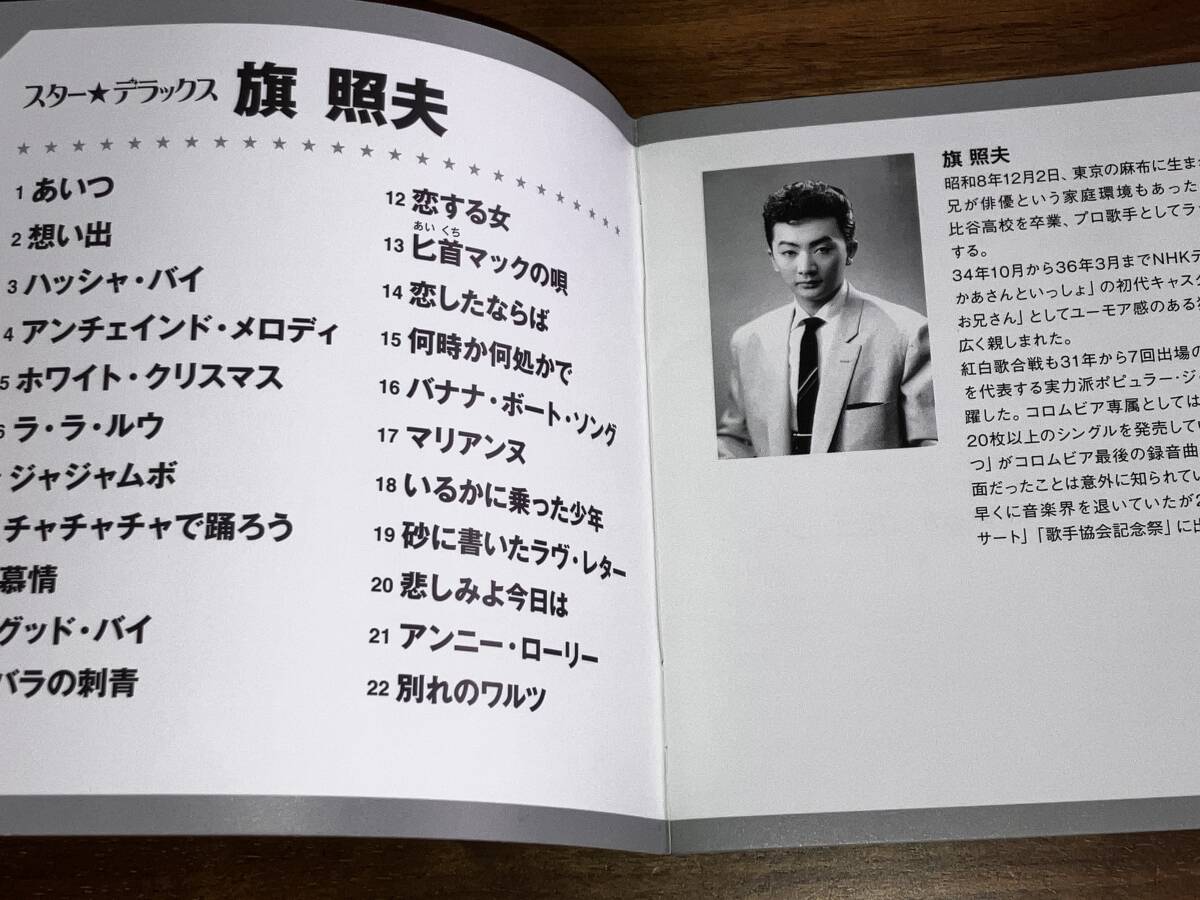 スター★デラックス 旗 照夫
1 あいつ
2 想い出
3 ハッシャ・バイ
4 アンチェインド・メロディ
5 ホワイト・クリスマス
6 ラ・ラ・ルウ
ジャジャムボ
チャチャチャで踊ろう
慕情
グッド・バイ
バラの刺青
12 恋する女
あい くち
13 匕首マックの唄
14 恋したならば
15 何時か何処かで
16 バナナ・ボート・ソング
17 マリアンヌ
18 いるかに乗った少年
19 砂に書いたラヴ・レター
20 悲しみよ今日は
21 アンニー・ローリー
22 別れのワルツ
旗 照夫
昭和8年12月2日、東京の麻布に生ま
兄が俳優という家庭環境もあった
比谷高校を卒業、プロ歌手としてラ
する。
34年10月から36年3月までNHKテ
かあさんといっしょ」の初代キャスタ
お兄さん」としてユーモア感のある
広く親しまれた。
紅白歌合戦も31年から7回出場の
を代表する実力派ポピュラー・ジャ
躍した。コロムビア専属としては
20枚以上のシングルを発売してい
つ」がコロムビア最後の録音曲
面だったことは意外に知られてい
早くに音楽界を退いていたが2
サート」「歌手協会記念祭」に出